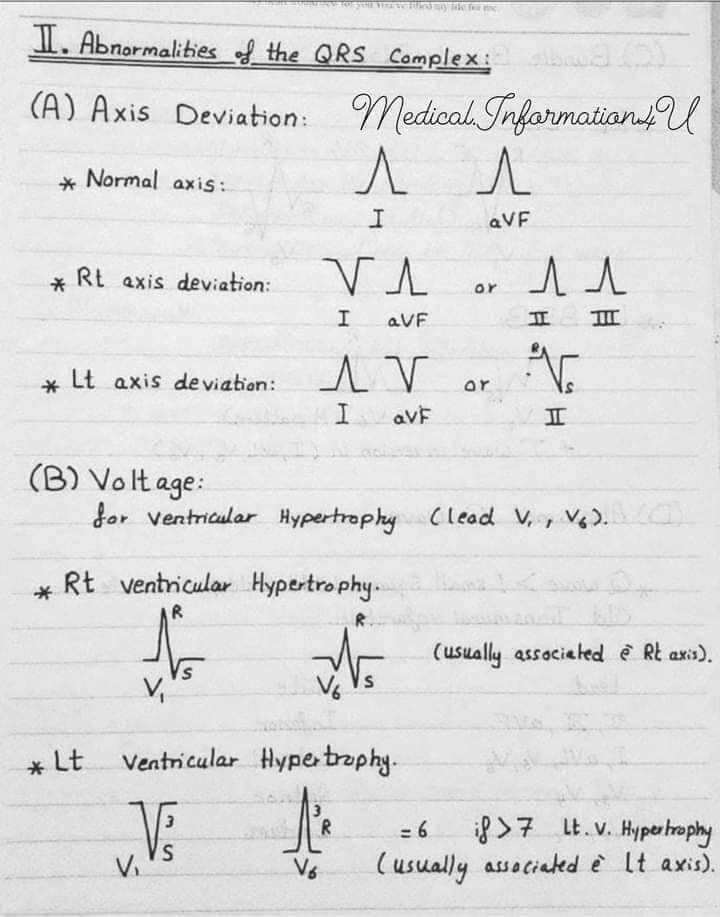 II. Abnormalities of the QRS Complex:
(A) Axis Deviation:
Medical.Information4U
* Normal axis:
I aVF
* Rt axis deviation:
or
I aVF II III
* Lt axis deviation:
or R S
I aVF II
(B) Voltage:
for ventricular Hypertrophy (lead V1, V6).
* Rt ventricular Hypertrophy.
R R
(usually associated ē Rt axis).
V1 S V6 S
* Lt ventricular Hypertrophy.
3 3
S R = 6 if > 7 Lt. V. Hypertrophy
V1 V6 (usually associated ē Lt axis).